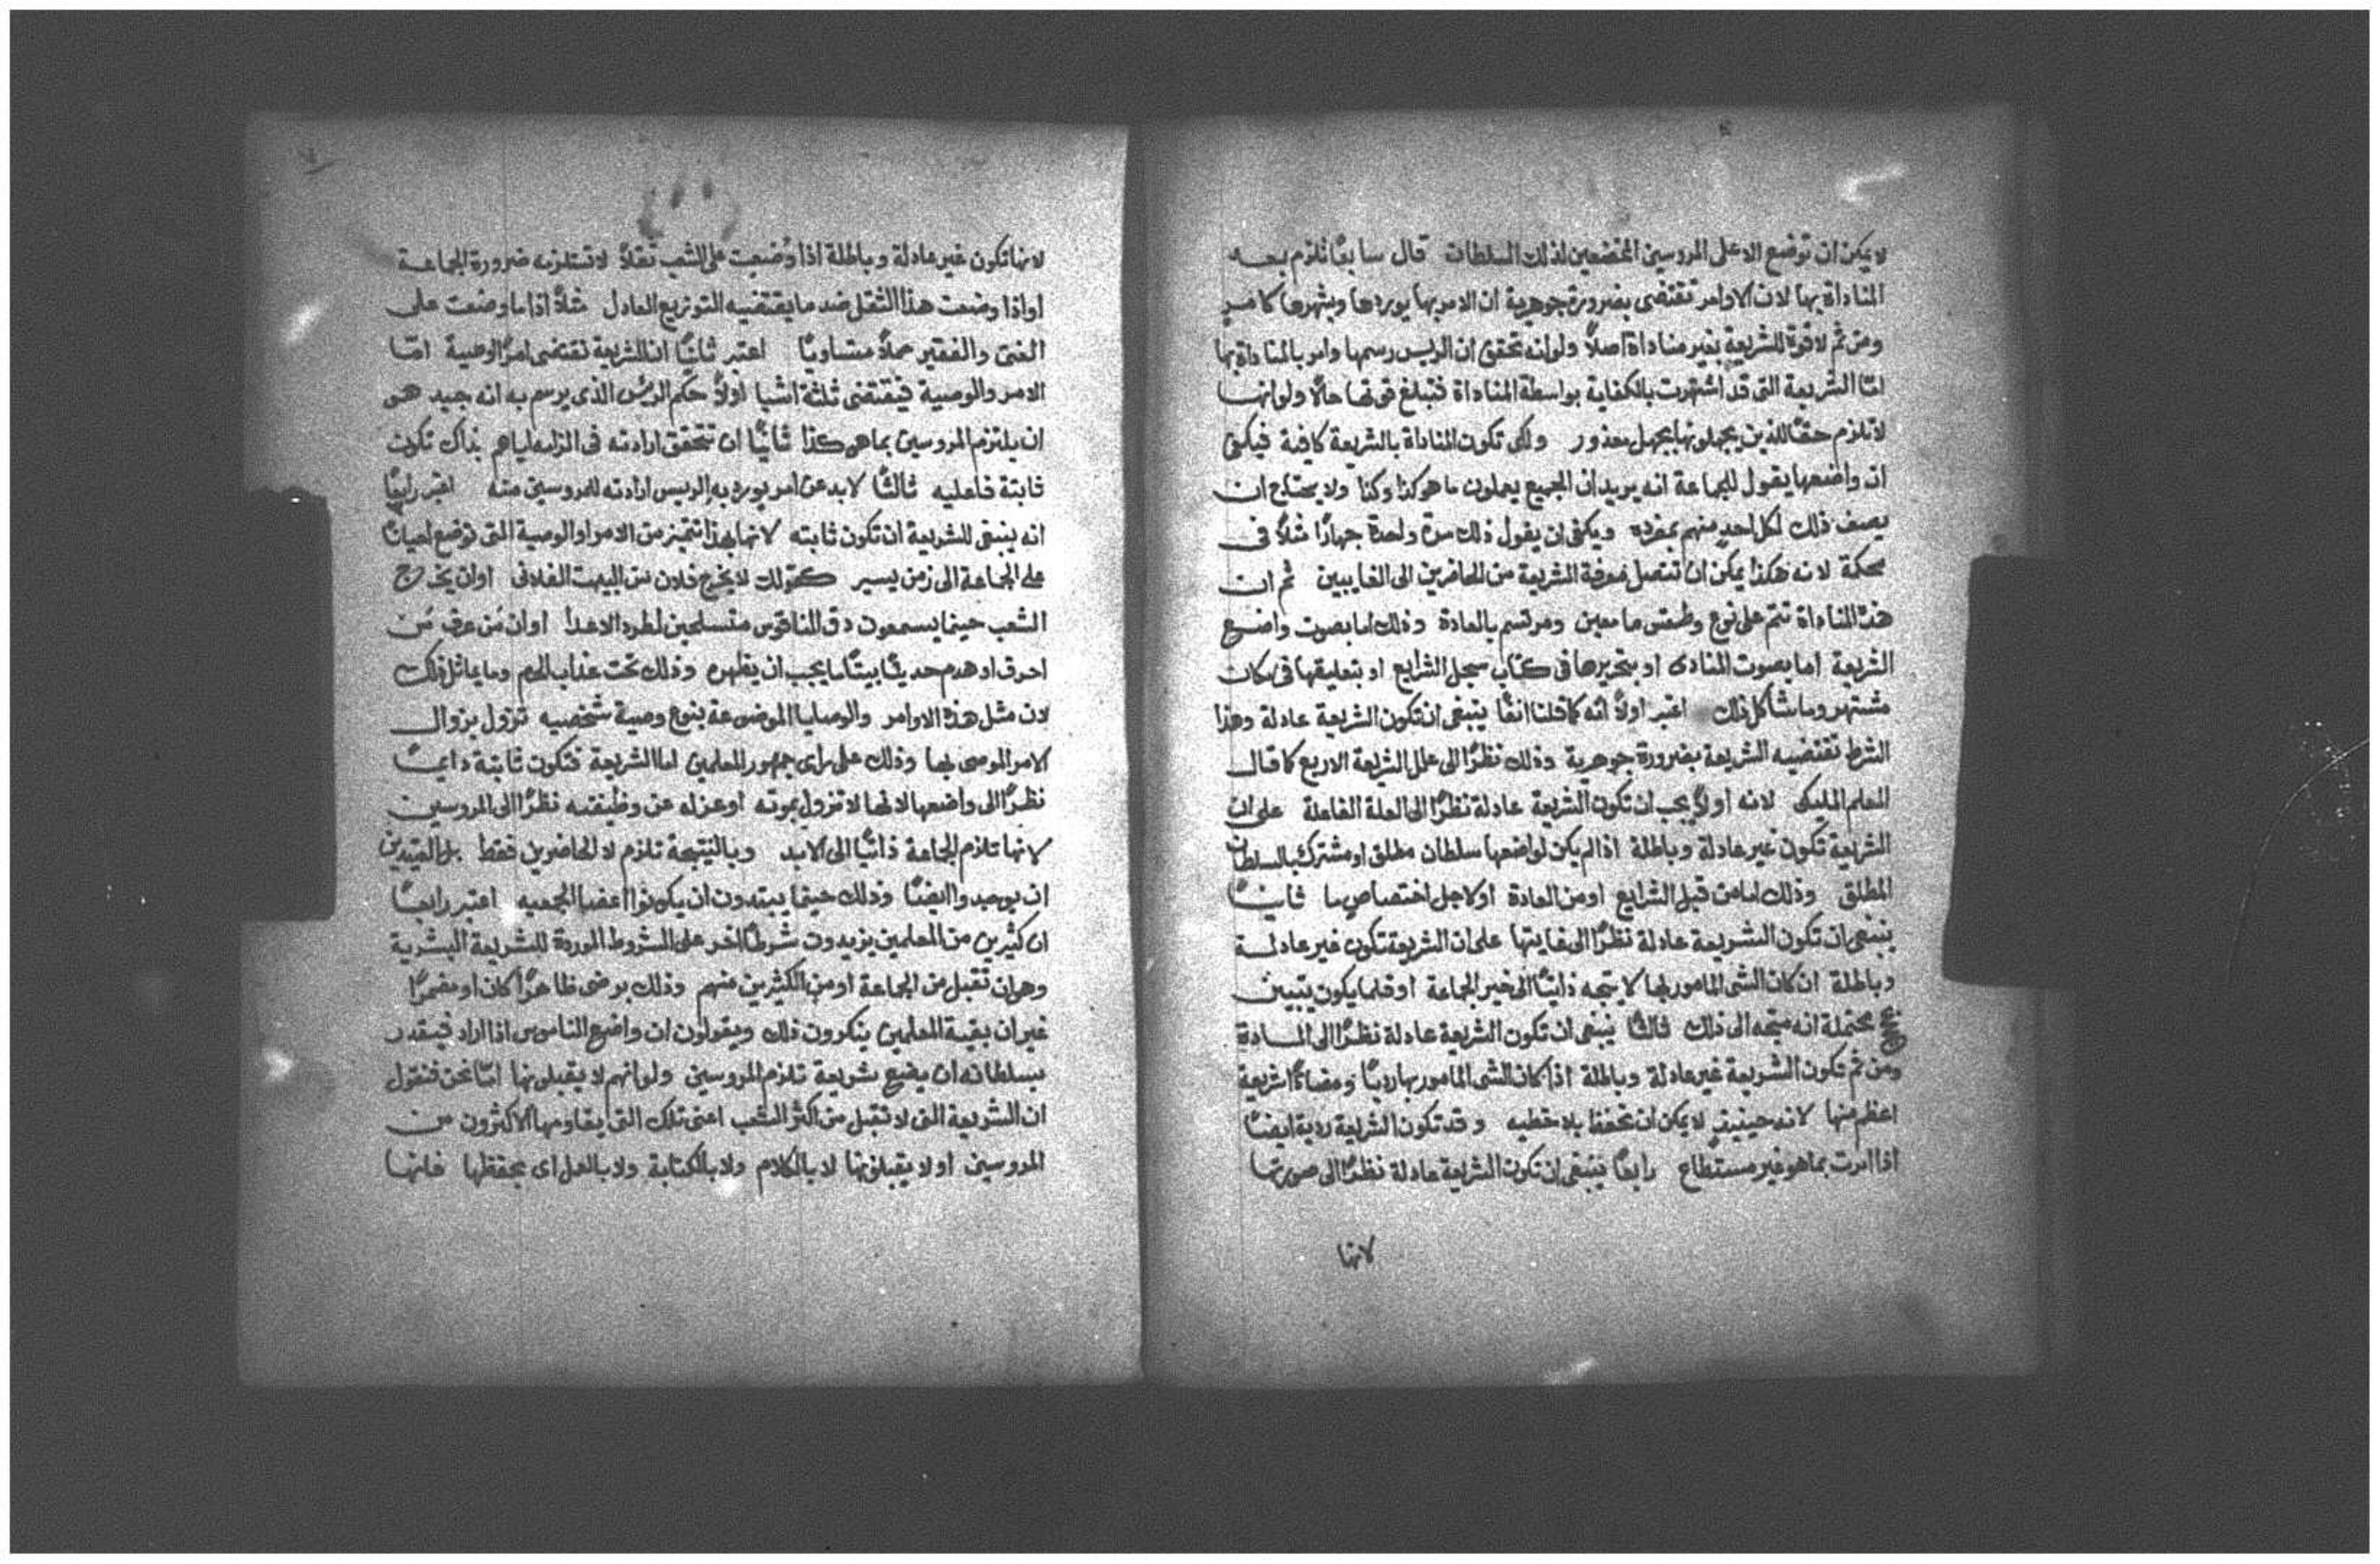 لا يمكن ان توضع الا على المروسين الخاضعين لذلك السلطان قال سابعًا تلزم بعد
المناداة بها لان الاوامر تقتضى بضرورة جوهرية ان الامر بها يوردها ويشهرها كامر
ومن ثم لا قوة للشريعة بغير مناداة اصلاً ولو انه تحقق ان الريس رسمها وامر بالمناداة بها
امّا الشريعة التى قد اشتهرت بالكفاية بواسطة المناداة فتبلغ قوتها حالاً ولو انها
لا تلزم حقًا للذين يجهلونها بجهل معذور ولكى تكون المناداة بالشريعة كافية فيكفى
ان واضعها يقول للجماعة انه يريد ان الجميع يعملون ما هو كذا وكذا ولا يحتاج ان
يصف ذلك لكل احد منهم بمفرده ويكفى ان يقول ذلك مرة واحدة جهارًا مثلاً فى
محكمة لانه هكذا يمكن ان تتصل معرفة الشريعة من الحاضرين الى الغايبين ثم ان
هذه المناداة تتم على نوع وطقس ما معين ومرتسم بالعادة وذلك اما بصوت واضع
الشريعة اما بصوت المنادى او بتحريرها فى كتاب سجل الشرايع او بتعليقها فى مكان
مشتهر وما شاكل ذلك اعتبر اولاً انه كما قلنا انفًا ينبغى ان تكون الشريعة عادلة وهذا
الشرط تقتضيه الشريعة بضرورة جوهرية وذلك نظرًا الى علل الشريعة الاربع كما قال
المعلم الملايكى لانه اولاً يجب ان تكون الشريعة عادلة نظرًا الى العلة الفاعلة على ان
الشريعة تكون غير عادلة وباطلة اذا لم يكن لواضعها سلطان مطلق او مشترك بالسلطان
المطلق وذلك اما من قبل الشرايع او من العادة او لاجل اختصاص ما ثانيًا
ينبغى ان تكون الشريعة عادلة نظرًا الى غايتها على ان الشريعة تكون غير عادلة
وباطلة ان كان الشى المامور بها لا يتجه ذاتيًا الى خير الجماعة او قلما يكون يتبين
محتملة انه متجه الى ذلك ثالثًا ينبغى ان تكون الشريعة عادلة نظرًا الى المادة
ومن ثم تكون الشريعة غير عادلة وباطلة اذا كان الشى المامور بها رديًا ومضادًا شريعة
اعظم منها لانه حينيذٍ لا يمكن ان تحفظ بلا خطيه وقد تكون الشريعة ردية ايضًا
اذا امرت بما هو غير مستطاع رابعًا ينبغى ان تكون الشريعة عادلة نظرًا الى صورتها
لانها
لانها تكون غير عادلة وباطلة اذا وُضعت على الشعب ثقلاً لا تستلزمه ضرورة الجماعة
او اذا وضعت هذا الثقل ضد ما يقتضيه التوزيع العادل مثلاً اذا ما وضعت على
الغنى والفقير حملاً متساويًا اعتبر ثانيًا ان الشريعة تقتضى امرًا او وصية امّا
الامر والوصية فيقتضى ثلثة اشيا اولاً حكم الريس الذى يرسم به انه جيد هو
ان يلتزم المروسين بما هو كذا ثانيًا ان تتحقق ارادته فى الزامه اياهم بذاك تكون
ثابتة فاعليه ثالثًا لا بد عن امر يورد به الريس ارادته للمروسين منه اعتبر رابعًا
انه ينبغى للشريعة ان تكون ثابته لانها بهذا تتميز من الامر او الوصية التى توضع احيانًا
على الجماعة الى زمن يسير كقولك لا يخرج فلان من البيت الفلانى او ان يخرج
الشعب حينما يسمعون دق الناقوس متسلحين لطرد الاعدا او ان مَن عرف مَن
احرق او هدم حديثًا بيتًا ما يجب ان يظهره وذلك تحت عذاب الحرم وما يماثل ذلك
لان مثل هذه الاوامر والوصايا الموضوعة بنوع وصية شخصيه تزول بزوال
الامر الموصى بها وذلك على راى جمهور المعلمين اما الشريعة فتكون ثابتة دايمًا
نظرًا الى واضعها لانها لا تزول بموته او عزله عن وظيفته نظرًا الى المروسين
لانها تلزم الجماعة ذاتيًا الى الابد وبالنتيجة تلزم لا الحاضرين فقط بل العتيدين
ان يوجدوا ايضًا وذلك حينما يبتدون ان يكونوا اعضا الجمعيه اعتبر رابعًا
ان كثيرين من المعلمين يزيدون شرطًا اخر على الشروط الموردة للشريعة البشرية
وهو ان تقبل من الجماعة او من الكثيرين منهم وذلك برضى ظاهرًا كان او مضمرًا
غير ان بقية المعلمين ينكرون ذلك ويقولون ان واضع الناموس اذا اراد فيقدر
بسلطانه ان يضع شريعة تلزم المروسين ولو انهم لا يقبلونها امّا نحن فنقول
ان الشريعة التى لا تقبل من اكثر الشعب اعنى تلك التى يقاومها الاكثرون من
المروسين او لا يقبلونها لا بالكلام ولا بالكتابة ولا بالعمل اى بحفظها فانها